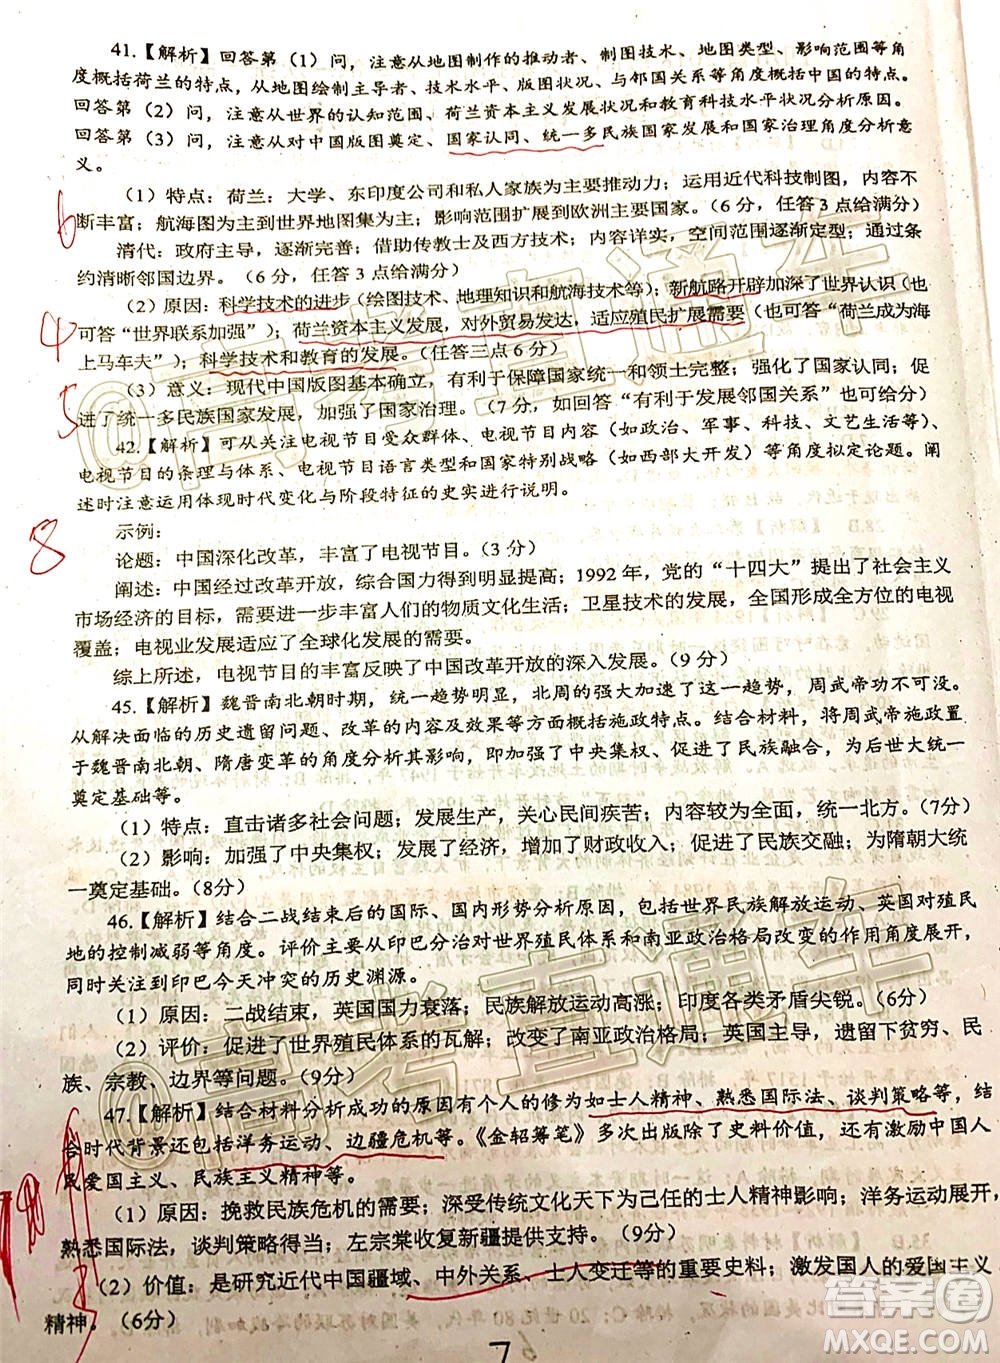 41.【解析】回答第（1）问，注意从地图制作的推动者、制图技术、地图类型、影响范围等角
度概括荷兰的特点，从地图绘制主导者、技术水平、版图状况、与邻国关系等角度概括中国的特点。
回答第（2）问，注意从世界的认知范围、荷兰资本主义发展状况和教育科技水平分析原因。
回答第（3）问，注意从对中国版图奠定、国家认同、统一多民族国家发展和国家治理角度分析意
义。
（1）特点：荷兰：大学、东印度公司和私人家族为主要推动力；运用近代科技制图，内容不
断丰富；航海图为主到世界地图集为主；影响范围扩展到欧洲主要国家。（6分，任答3点给满分）
6
清代：政府主导，逐渐完善；借助传教士及西方技术；内容详实，空间范围逐渐定型；通过条
约约清晰邻国边界。（6分，任答3点给满分）
（2）原因：科学技术的进步（绘图技术、地理知识和航海技术等）；新航路开辟加深了世界认识（也
可答“世界联系加强”）；荷兰资本主义发展，对外贸易发达，适应殖民扩展需要（也可答“荷兰成为海
4
上马车夫”）；科学技术和教育的发展。（任答三点6分）
（3）意义：现代中国版图基本确立，有利于保障国家统一和领土完整；强化了国家认同；促
进了统一多民族国家发展，加强了国家治理。（7分，如回答“有利于发展邻国关系”可给分）
5
42.【解析】可从关注电视节目受众群体、电视节目内容（如政治、军事、科技、文艺生活等）、
电视节目的条理与体系、电视节目语言类型和国家特别战略（如西部大开发）等角度拟定论题。阐
述时注意运用体现时代变化与阶段特征的史实进行说明。
示例：
8
论题：中国深化改革，丰富了电视节目。（3分）
阐述：中国经过改革开放，综合国力得到明显提高；1992年，党的“十四大”提出了社会主义
市场经济的目标，需要进一步丰富人们的物质文化生活；卫星技术的发展，全国形成全方位的电视
覆盖；电视业发展适应了全球化发展的需要。
综上所述，电视节目的丰富反映了中国改革开放的深入发展。（9分）
45.【解析】魏晋南北朝时期，统一趋势明显，北周的统一促成了这一趋势，周武帝功不可没。
从解决面临的历史遗留问题、改革的内容及效果等方面概括施政特点。结合材料，将周武帝施政置
于魏晋南北朝、隋唐变革的角度分析其影响，即加强了中央集权、促进了民族融合，为后世大统一
奠定基础等。
（1）特点：直击诸多社会问题；发展生产，关心民间疾苦；内容较为全面，统一北方。（7分）
（2）影响：加强了中央集权；发展了经济，增加了财政收入；促进了民族交融；为隋朝大统
一奠定基础。（8分）
46.【解析】结合二战结束后的国际、国内形势分析原因，包括世界民族解放运动、英国对殖民
地的控制减弱等角度。评价主要从印巴分治对世界殖民体系和南亚政治格局改变的作用角度展开，
同时关注到印巴今天冲突的历史渊源。
（1）原因：二战结束，英国国力衰落；民族解放运动高涨；印度各类矛盾尖锐。（6分）
（2）评价：促进了世界殖民体系的瓦解；改变了南亚政治格局；英国主导，遗留下贫穷、民
族、宗教、边界等问题。（9分）
47.【解析】结合材料分析成功的原因有个人的修为如士人精神、熟悉国际法、谈判策略等，结
合时代背景还包括洋务运动、边疆危机等。《金轺筹笔》多次出版除了史料价值，还有激励中国人
民爱国主义、民族主义精神等。
（1）原因：挽救民族危机的需要；深受传统文化天下为己任的士人精神影响；洋务运动展开，
熟悉国际法，谈判策略得当；左宗棠收复新疆提供支持。（9分）
（2）价值：是研究近代中国疆域、中外关系、士人变迁等的重要史料；激发国人的爱国主义
精神。（6分）
7
@高考直通车
@高考直通车
答案圈
MXQE.COM